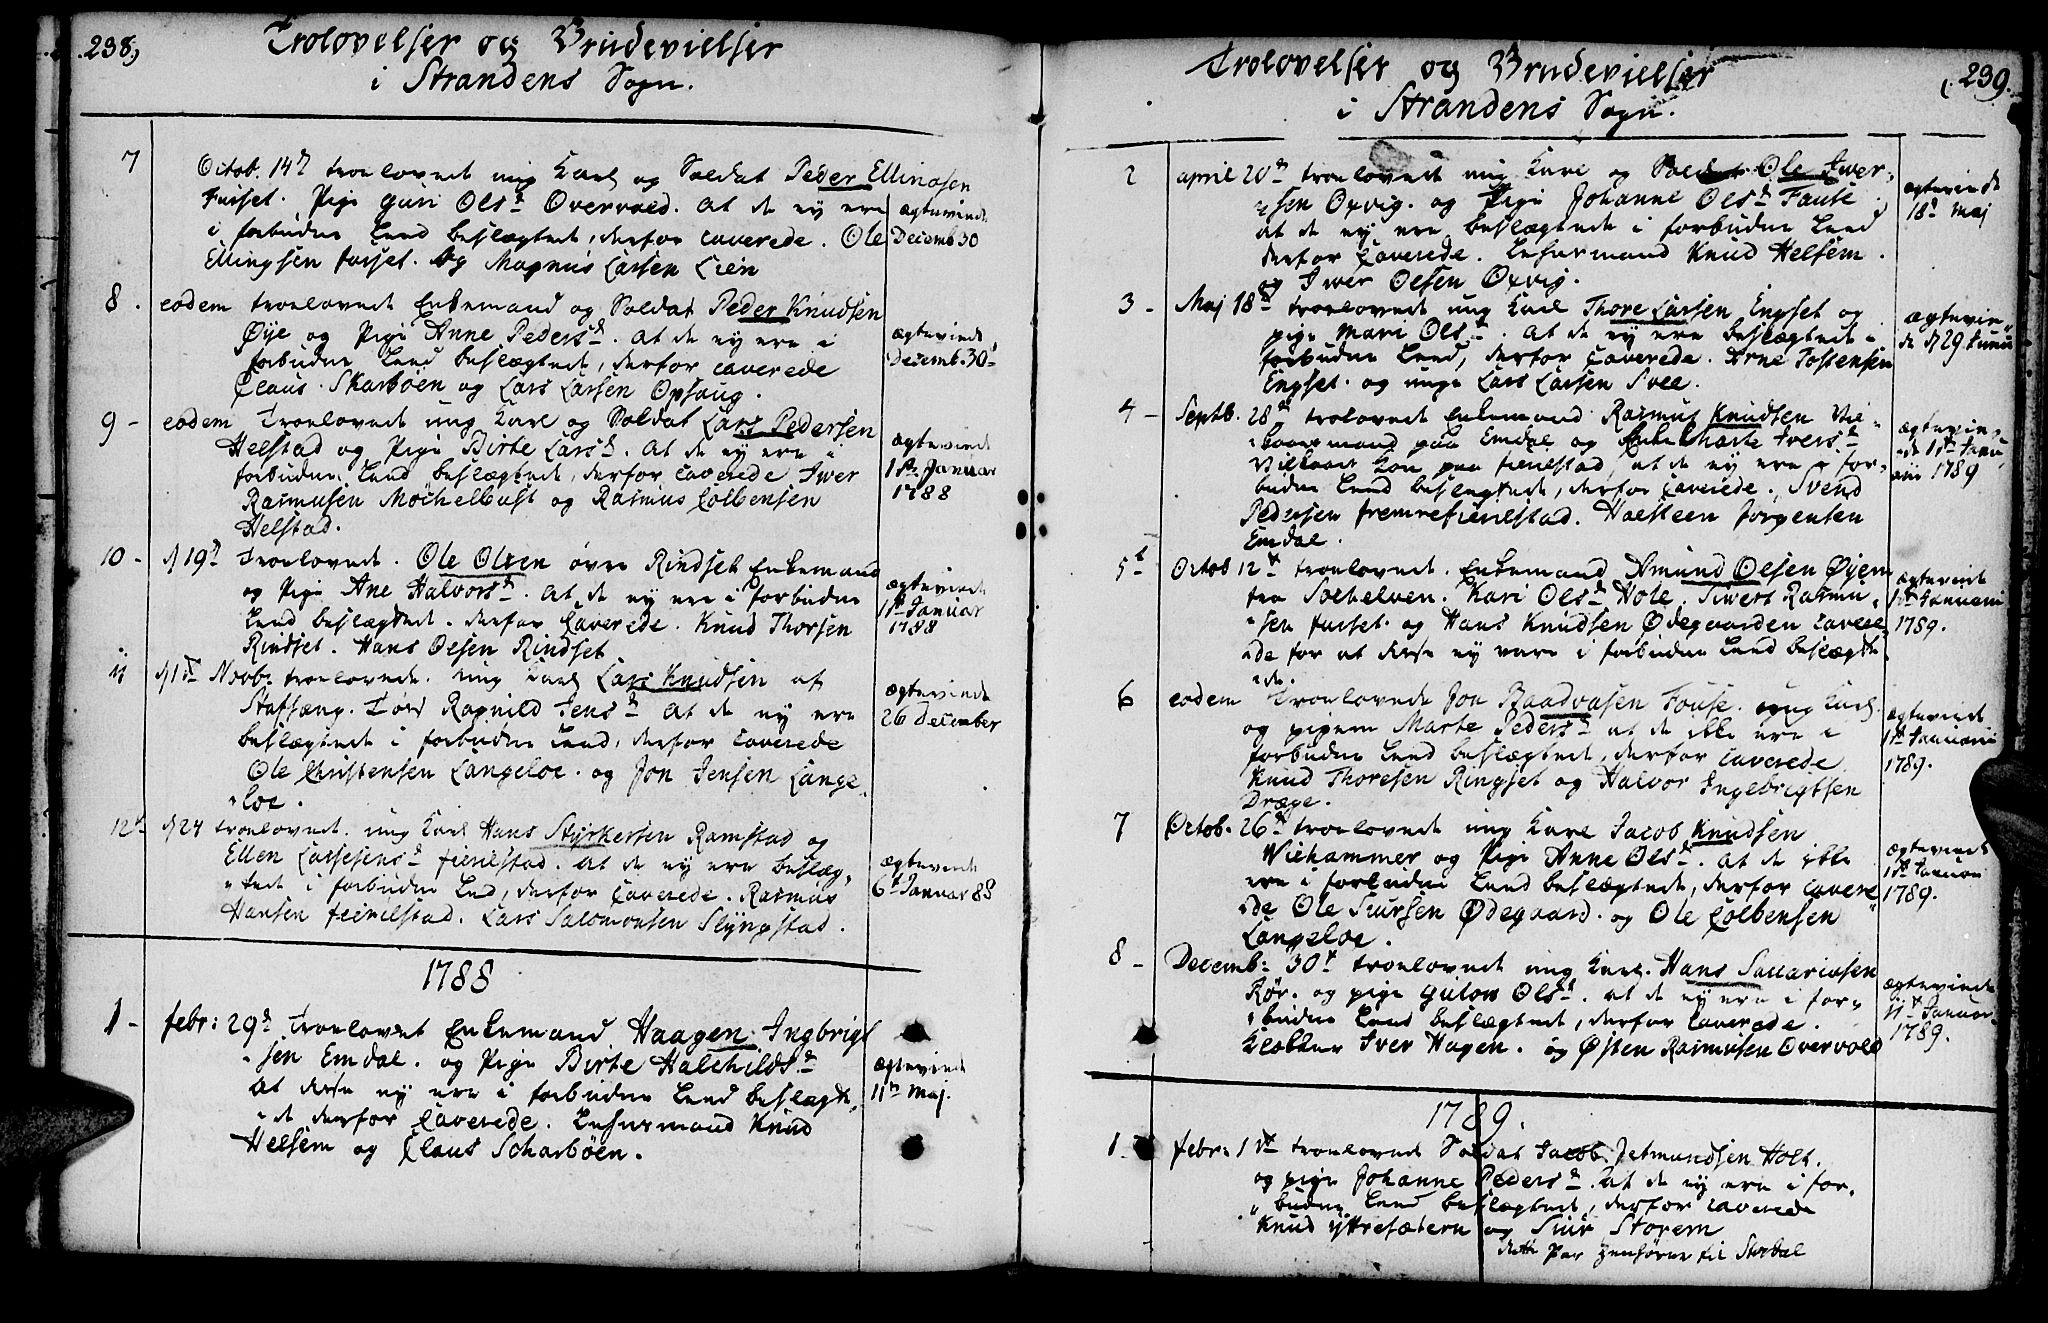 238,)
Trolovelser og Brudevielser
i Strandens Sogn.
7 Octob. 14de troelovede ung Karl og Soldat Peder Ellingsen
Furset. Pige Guri Olsd Overvold. at de ej ere
i forbudne Leed beslægtede, derfor caverede. Ole
Ellingsen furset. Og Magnus Larsen Lien
ægteviede
Decemb 30
8. eodem troelovede Enkemand og Soldat Peder Knudsen
Øÿe og Pige Anne Pedersd. at de ej ere i
forbudne Leed beslægtede, derfor caverede
Claus Skarboen og Lars Larsen Opsaug.
ægteviede
Decemb. 30
9 - eodem Troelovede ung Karl og Soldat Lars Pedersen
Helstad og Pige Birte Larsd. at de ej ere
forbudne Leed beslægtede, derfor caverede Iwer
Rasmusen Mochelbust og Rasmus Colbensen
Helstad.
ægteviede
1ste Januar
1788
10 - d 19de Troelovede. Ole Olsen øvre Rindset Enkemand
og Pige Ane Halvorsd. at de ej ere i forbudne
Leed beslægtede. derfor caverede. Knud Thorsen
Rindset. Hans Olsen Rindset
ægteviede
1ste Januar
1788
11 d 1te Novb: troelovede. ung Karl Lars Knudsen af
Stafsæng. Ragnild Jensd at de ej ere
beslægtede i forbudne Leed, derfor caverede
Ole Christensen Langeloe. og Jon Jensen Lange
loe.
ægteviede
26 December
12te d 24 troelovede. ung Karl Hans Styrkersen Ramstad og
Ellen Lassesensd fierilstad. at de ej ere beslæg,
tede i forbudne Leed, derfor caverede. Rasmus
Hansen feirilstad. Lars Salomonsen Slyngstad.
ægteviede
6t Januar 88
1788
1 - febr: 29de Troelovet Enkemand Haagen Ingbrigt
sen Emdal. og Pige Birte Halchildsd
at disse ej ere i forbudne Leed beslægte,
de derfor caverede. Lensmand Knud
Helsem og Claus Scharbøen.
ægteviede
11te Maj.
Trolovelser og Brudevielser
i Strandens Sogn.
(239.
2 april 20de troelovede ung Karl og Soldat Ole Iwer,
sen Oxvig. og Pige Johanne Olsd Fause
at de ej ere beslægtede i forbudne Leed
derfor Caverede. Lensmand Knud Helsem.
og Iwer Olsen Oxvig.
ægteviede
18de Maj
3 - Maj 18de troelovede ung Karl Thore Larsen Engset og
pige Mari Olsd. at de ej ere beslægtede i
forbudne Leed, derfor caverede. Arne Tostensen
Engset. og unge Lars Larsen Svee.
ægtevie
de d 29 Junii
4 - Septb. 28de trolovede Enkemand Rasmus Knudsen Vil,
kaarsmand paa Emdal og Enke Marte Iversd
Vilkaars Kon paa fierilstad, at de ej ere i for,
budne Leed beslegtede, derfor caverede, Svend
Pedersen fremrefierilstad. Halsteen Jørgensen
Emdal.
ægtevie
de 1ste Janu
arii 1789
5t Octob 12te troelovede. Enkemand Amund Olsen Øyen
fra Sochelven. Kari Olsd Hole. Siwert Rasmu,
sen furset og Hans Knudsen Ødegaarden cavere
de for at disse ej vare i forbudne Leed beslægte
de.
ægteviede
1ste Januari
1789.
6 eodem Troelovede Jon Baadvasen Fouse. ung Karl.
og pigen Marte Pedersd at de ikke ere i
forbudne Leed beslægtede, derfor caverede
Knud Thoresen Ringset og Halvor Ingebrigtsen
Dræge.
ægteviede
1ste Januarii
1789.
7 Octob. 26te troelovede ung Karl Jacob Knudsen
Wiehammer og Pige Anne Olsd. at de ikke
ere i forbudne Leed beslægtede, derfor cavere
de Ole Siursen Ødegaard. og Ole Colbensen
Langeloe.
ægteviede
1ste Januari
1789.
8 - Decemb: 30te troelovede ung Karl. Hans Saccariasen
Rør. og pige Gulou Olsd. at de ej ere i for,
budne Leed beslægtede, derfor caverede.
Klokker Iver Hagen. og Østen Rasmusen Overvold
ægteviede
11te Januar.
1789.
1789.
1. febr: 1ste troelovede Soldat Jacob Jetmundsen Holt.
og pige Johanne Pedersd. at de ej ere i for,
budne Leed beslægtede, derfor caverede
Knud yttresætern og Siur Storem
dette Par henhører til Stordal